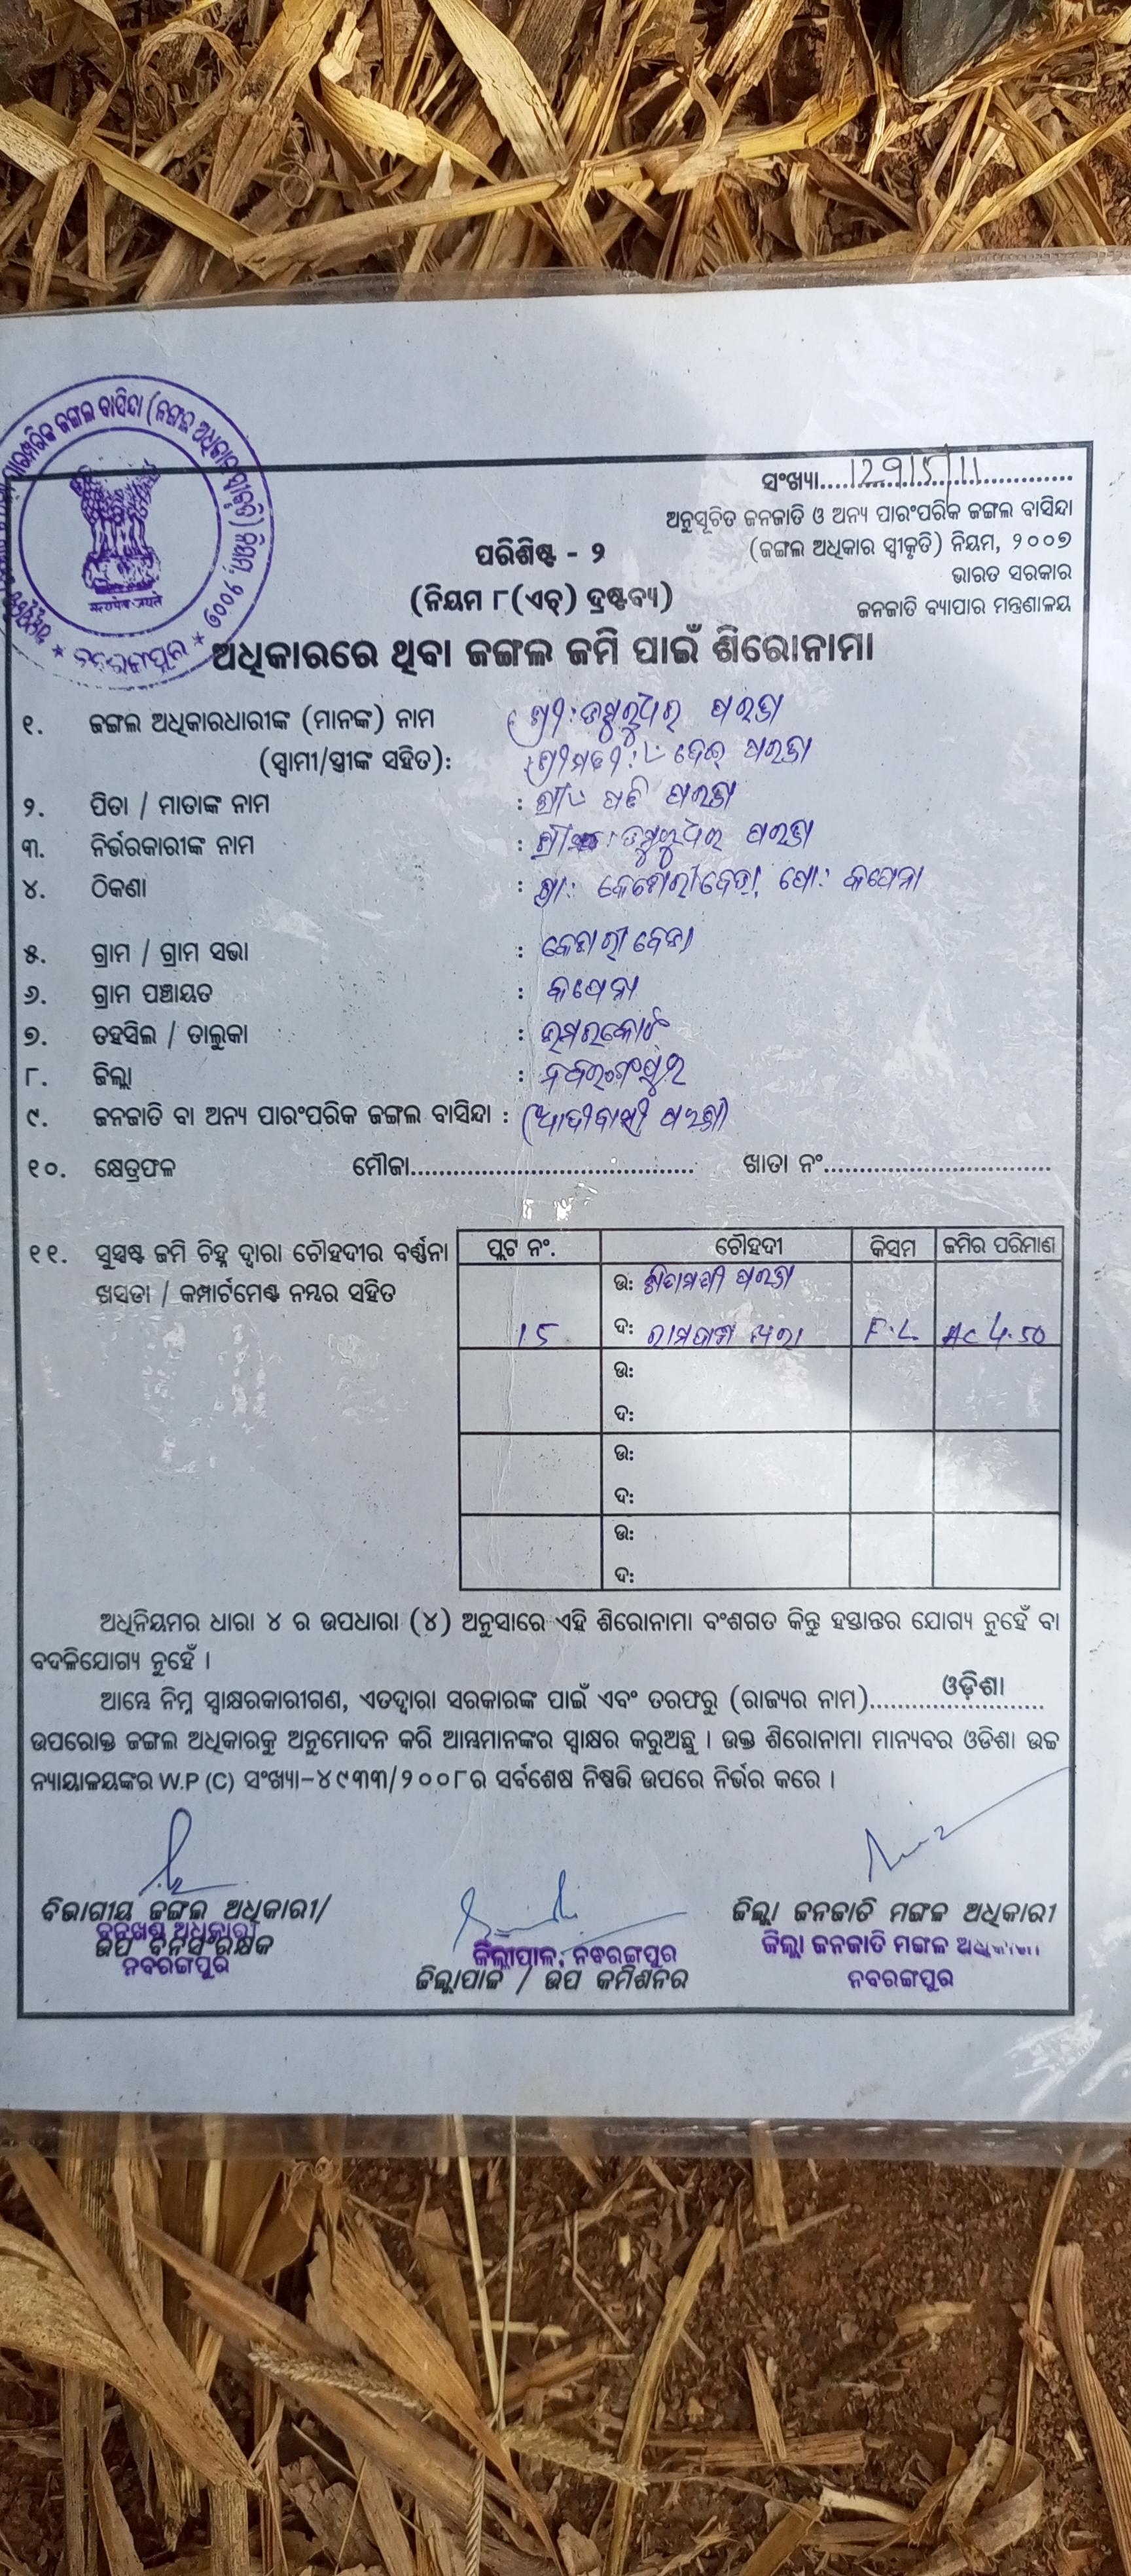 ପାରମ୍ପରିକ ଜଙ୍ଗଲ ବାସିନ୍ଦା (ଜଙ୍ଗଲ ଅଧିକାର ସ୍ୱୀକୃତି) ନିୟମ, ୨୦୦୭ * ନବରଙ୍ଗପୁର *
सत्यमेव जयते
ସଂଖ୍ୟା....12915/11
ଅନୁସୂଚିତ ଜନଜାତି ଓ ଅନ୍ୟ ପାରଂପରିକ ଜଙ୍ଗଲ ବାସିନ୍ଦା
(ଜଙ୍ଗଲ ଅଧିକାର ସ୍ୱୀକୃତି) ନିୟମ, ୨୦୦୭
ଭାରତ ସରକାର
ଜନଜାତି ବ୍ୟାପାର ମନ୍ତ୍ରଣାଳୟ
ପରିଶିଷ୍ଟ - ୨
(ନିୟମ ୮(ଏଚ୍) ଦ୍ରଷ୍ଟବ୍ୟ)
ଅଧିକାରରେ ଥିବା ଜଙ୍ଗଲ ଜମି ପାଇଁ ଶିରୋନାମା
୧. ଜଙ୍ଗଲ ଅଧିକାରଧାରୀଙ୍କ (ମାନଙ୍କ) ନାମ ଶ୍ରୀ: ଡମ୍ବୁରୁଧର ପରଜା
(ସ୍ୱାମୀ/ସ୍ତ୍ରୀଙ୍କ ସହିତ): ଶ୍ରୀମତୀ: ଦେଇ ପରଜା
୨. ପିତା / ମାତାଙ୍କ ନାମ : ପରଜା
୩. ନିର୍ଭରକାରୀଙ୍କ ନାମ : ଡମ୍ବୁରୁଧର ପରଜା
୪. ଠିକଣା : ଗ୍ରା: କେଶାରୀବେଡା, ପୋ:
୫. ଗ୍ରାମ / ଗ୍ରାମ ସଭା : କେଶାରୀବେଡା
୬. ଗ୍ରାମ ପଞ୍ଚାୟତ :
୭. ତହସିଲ / ତାଲୁକା : ଉମରକୋଟ
୮. ଜିଲ୍ଲା : ନବରଂଗପୁର
୯. ଜନଜାତି ବା ଅନ୍ୟ ପାରଂପରିକ ଜଙ୍ଗଲ ବାସିନ୍ଦା : (ଆଦୀବାସୀ ପରଜା)
୧୦. କ୍ଷେତ୍ରଫଳ ମୌଜା........ ଖାତା ନଂ........
୧୧. ସୁସ୍ପଷ୍ଟ ଜମି ଚିହ୍ନ ଦ୍ୱାରା ଚୌହଦୀର ବର୍ଣ୍ଣନା
ଖସଡା / କମ୍ପାର୍ଟମେଣ୍ଟ ନମ୍ବର ସହିତ
ପ୍ଲଟ ନଂ. ଚୌହଦୀ କିସମ ଜମିର ପରିମାଣ
ଉ: ପରଜା
15 ଦ: ରାମଦାସ F.L AC 4.50
ଉ:
ଦ:
ଉ:
ଦ:
ଉ:
ଦ:
ଅଧିନିୟମର ଧାରା ୪ ର ଉପଧାରା (୪) ଅନୁସାରେ ଏହି ଶିରୋନାମା ବଂଶଗତ କିନ୍ତୁ ହସ୍ତାନ୍ତର ଯୋଗ୍ୟ ନୁହେଁ ବା
ବଦଳିଯୋଗ୍ୟ ନୁହେଁ ।
ଆମ୍ଭେ ନିମ୍ନ ସ୍ୱାକ୍ଷରକାରୀଗଣ, ଏତଦ୍ୱାରା ସରକାରଙ୍କ ପାଇଁ ଏବଂ ତରଫରୁ (ରାଜ୍ୟର ନାମ)........ଓଡ଼ିଶା........
ଉପରୋକ୍ତ ଜଙ୍ଗଲ ଅଧିକାରକୁ ଅନୁମୋଦନ କରି ଆମ୍ଭମାନଙ୍କର ସ୍ୱାକ୍ଷର କରୁଅଛୁ । ଉକ୍ତ ଶିରୋନାମା ମାନ୍ୟବର ଓଡିଶା ଉଚ୍ଚ
ନ୍ୟାୟାଳୟଙ୍କର W.P (C) ସଂଖ୍ୟା-୪୯୩୩/୨୦୦୮ର ସର୍ବଶେଷ ନିଷ୍ପତ୍ତି ଉପରେ ନିର୍ଭର କରେ ।
ବିଭାଗୀୟ ଜଙ୍ଗଲ ଅଧିକାରୀ/
ବନଖଣ୍ଡ ଅଧିକାରୀ
ଉପ ବନସଂରକ୍ଷକ
ନବରଙ୍ଗପୁର
ଜିଲ୍ଲାପାଳ, ନବରଙ୍ଗପୁର
ଜିଲ୍ଲାପାଳ / ଉପ କମିଶନର
ଜିଲ୍ଲା ଜନଜାତି ମଙ୍ଗଳ ଅଧିକାରୀ
ଜିଲ୍ଲା ଜନଜାତି ମଙ୍ଗଳ ଅଧିକାରୀ
ନବରଙ୍ଗପୁର